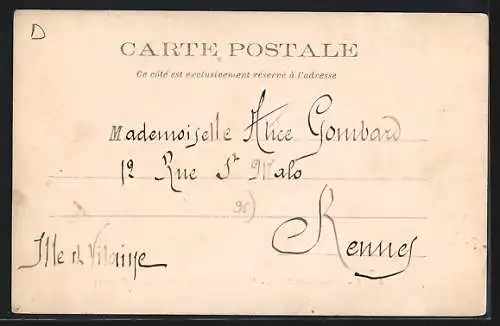 D
CARTE POSTALE
Ce côté est exclusivement réservé à l'adresse
Mademoiselle Alice Gombard
12 Rue St Malo
Rennes
Ille et Vilaine